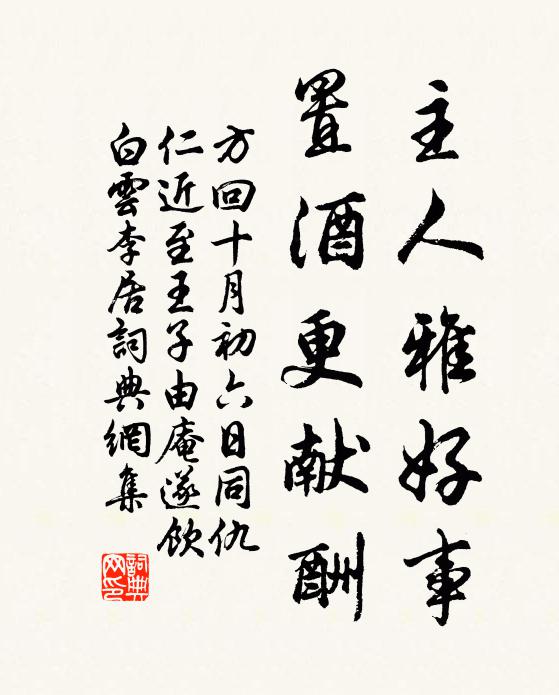 主人雅好事
置酒更献酬
方回十月初六日同仇
仁近至王子由庵遂飲
白雲李居詞典網集
詞典
网印